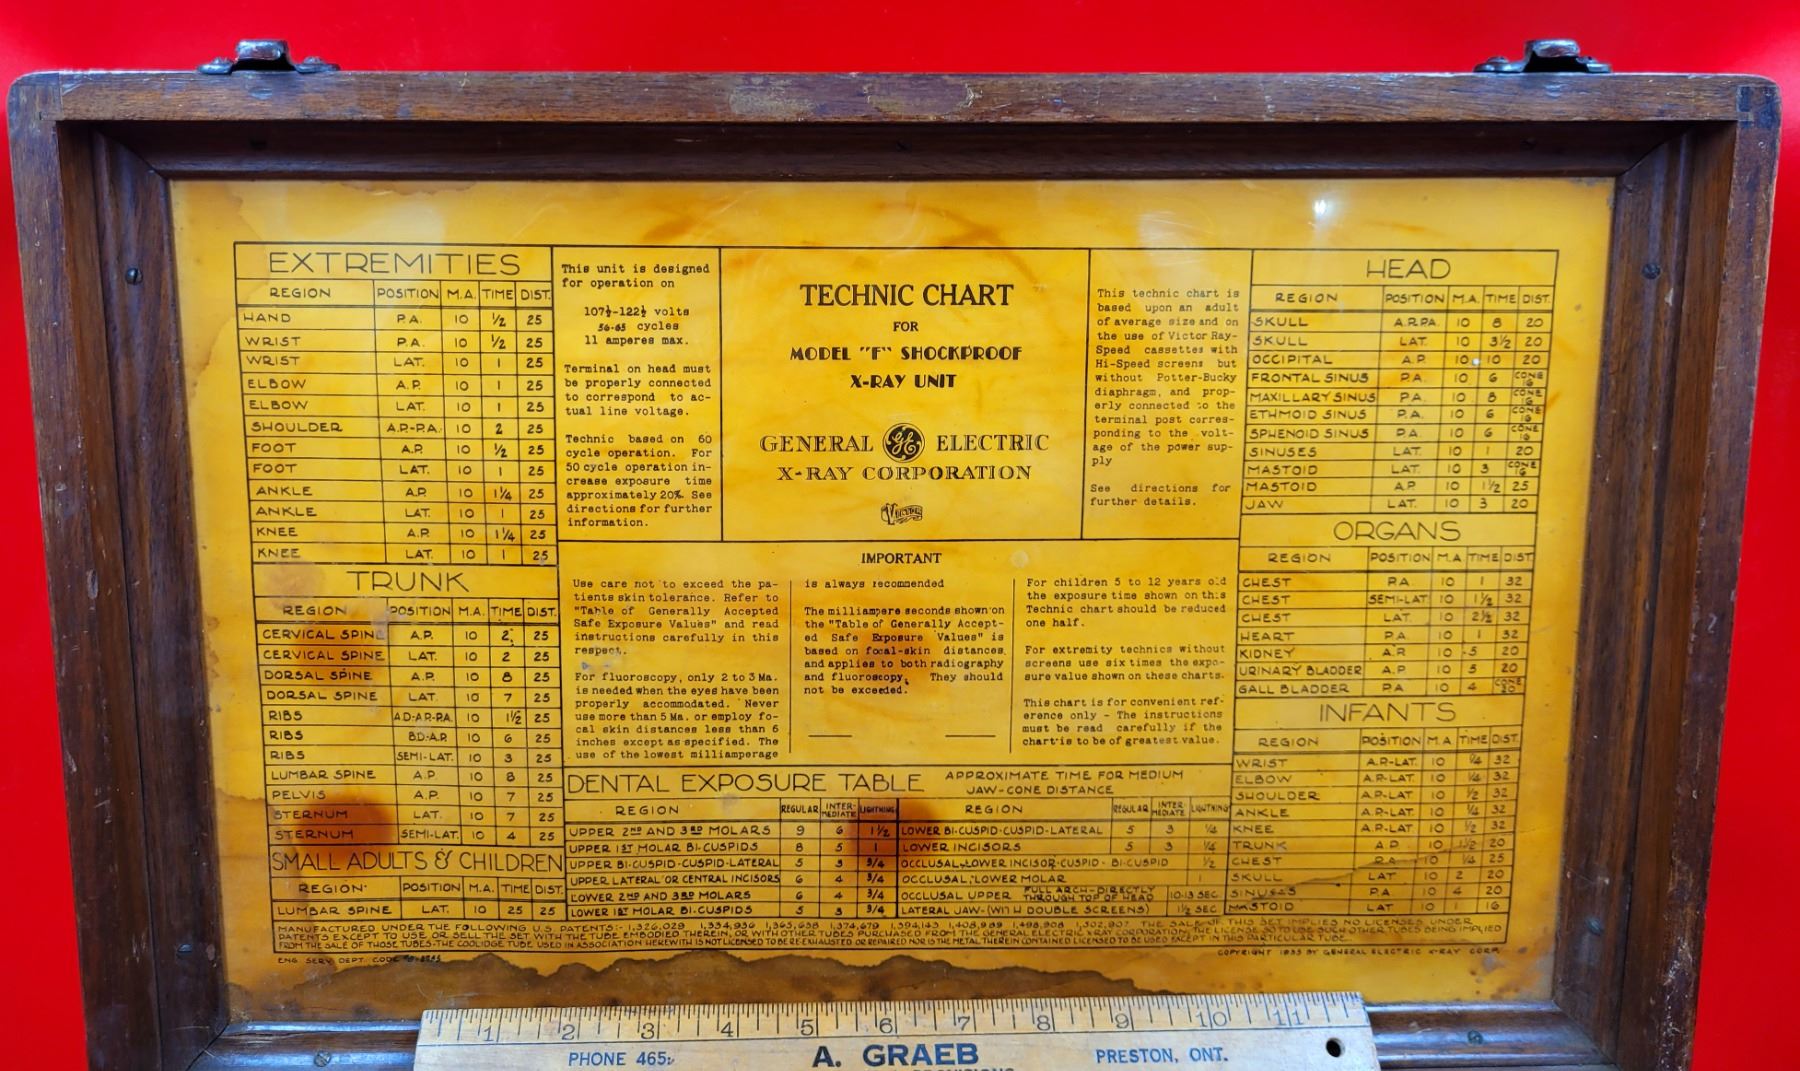 EXTREMITIES
REGION POSITION M.A. TIME DIST.
HAND P.A. 10 1/2 25
WRIST P.A. 10 1/2 25
WRIST LAT. 10 1 25
ELBOW A.P. 10 1 25
ELBOW LAT. 10 1 25
SHOULDER A.P.-P.A. 10 2 25
FOOT A.P. 10 1/2 25
FOOT LAT. 10 1 25
ANKLE A.P. 10 1 1/4 25
ANKLE LAT. 10 1 25
KNEE A.P. 10 1 1/4 25
KNEE LAT. 10 1 25
TRUNK
REGION POSITION M.A. TIME DIST.
CERVICAL SPINE A.P. 10 2 25
CERVICAL SPINE LAT. 10 2 25
DORSAL SPINE A.P. 10 8 25
DORSAL SPINE LAT. 10 7 25
RIBS A.D.-A.P.-P.A. 10 1 1/2 25
RIBS B.D.-A.P. 10 6 25
RIBS SEMI-LAT. 10 3 25
LUMBAR SPINE A.P. 10 8 25
PELVIS A.P. 10 7 25
STERNUM LAT. 10 7 25
STERNUM SEMI-LAT. 10 4 25
SMALL ADULTS & CHILDREN
REGION POSITION M.A. TIME DIST.
LUMBAR SPINE LAT. 10 25 25
This unit is designed
for operation on
107½-122½ volts
56-65 cycles
11 amperes max.
Terminal on head must
be properly connected
to correspond to ac-
tual line voltage.
Technic based on 60
cycle operation. For
50 cycle operation in-
crease exposure time
approximately 20%. See
directions for further
information.
TECHNIC CHART
FOR
MODEL "F" SHOCKPROOF
X-RAY UNIT
GENERAL GE ELECTRIC
X-RAY CORPORATION
VICTOR
This technic chart is
based upon an adult
of average size and on
the use of Victor Ray-
Speed cassettes with
Hi-Speed screens but
without Potter-Bucky
diaphragm, and prop-
erly connected to the
terminal post corres-
ponding to the volt-
age of the power sup-
ply
See directions for
further details.
IMPORTANT
Use care not to exceed the pa-
tients skin tolerance. Refer to
"Table of Generally Accepted
Safe Exposure Values" and read
instructions carefully in this
respect.
For fluoroscopy, only 2 to 3 Ma.
is needed when the eyes have been
properly accommodated. Never
use more than 5 Ma. or employ fo-
cal skin distances less than 6
inches except as specified. The
use of the lowest milliamperage
is always recommended
The milliampere seconds shown on
the "Table of Generally Accept-
ed Safe Exposure Values" is
based on focal-skin distances
and applies to both radiography
and fluoroscopy. They should
not be exceeded.
For children 5 to 12 years old
the exposure time shown on this
Technic chart should be reduced
one half.
For extremity technics without
screens use six times the expo-
sure value shown on these charts.
This chart is for convenient ref-
erence only - The instructions
must be read carefully if the
chart is to be of greatest value.
DENTAL EXPOSURE TABLE APPROXIMATE TIME FOR MEDIUM
JAW-CONE DISTANCE
REGION REGULAR INTER-MEDIATE LIGHTNING REGION REGULAR INTER-MEDIATE LIGHTNING
UPPER 2ND AND 3RD MOLARS 9 6 1 1/2 LOWER BI-CUSPID-CUSPID-LATERAL 5 3 1/4
UPPER 1ST MOLAR BI-CUSPIDS 8 5 1 LOWER INCISORS 5 3 1/4
UPPER BI-CUSPID-CUSPID-LATERAL 5 3 3/4 OCCLUSAL, LOWER INCISOR-CUSPID-BI-CUSPID 1/2
UPPER LATERAL OR CENTRAL INCISORS 6 4 3/4 OCCLUSAL, LOWER MOLAR 1
LOWER 2ND AND 3RD MOLARS 6 4 3/4 OCCLUSAL UPPER FULL ARCH-DIRECTLY THROUGH TOP OF HEAD 10-13 SEC.
LOWER 1ST MOLAR BI-CUSPIDS 5 3 3/4 LATERAL JAW-(WITH DOUBLE SCREENS) 1/2 SEC.
HEAD
REGION POSITION M.A. TIME DIST.
SKULL A.P.P.A. 10 8 20
SKULL LAT. 10 3 1/2 20
OCCIPITAL A.P. 10 10 20
FRONTAL SINUS P.A. 10 6 CONE 16
MAXILLARY SINUS P.A. 10 8 CONE 16
ETHMOID SINUS P.A. 10 6 CONE 16
SPHENOID SINUS P.A. 10 6 CONE 16
SINUSES LAT. 10 1 20
MASTOID LAT. 10 3 CONE 16
MASTOID A.P. 10 1 1/2 25
JAW LAT. 10 3 20
ORGANS
REGION POSITION M.A. TIME DIST.
CHEST P.A. 10 1 32
CHEST SEMI-LAT. 10 1 1/2 32
CHEST LAT. 10 2 1/2 32
HEART P.A. 10 1 32
KIDNEY A.P. 10 5 20
URINARY BLADDER A.P. 10 5 20
GALL BLADDER P.A. 10 4 CONE 20
INFANTS
REGION POSITION M.A. TIME DIST.
WRIST A.P.-LAT. 10 1/4 32
ELBOW A.P.-LAT. 10 1/4 32
SHOULDER A.P.-LAT. 10 1/2 32
ANKLE A.P.-LAT. 10 1/4 32
KNEE A.P.-LAT. 10 1/2 32
TRUNK A.P. 10 1 1/2 20
CHEST P.A. 10 1/4 25
SKULL LAT. 10 2 20
SINUSES P.A. 10 4 20
MASTOID LAT. 10 1 16
MANUFACTURED UNDER THE FOLLOWING U.S. PATENTS:- 1,326,029 1,334,936 1,365,638 1,374,679 1,394,143 1,408,989 1,498,908 1,502,907 THE SALE OF THIS SET IMPLIES NO LICENSES UNDER
PATENTS EXCEPT TO USE OR SELL THE SET WITH THE TUBE EMBODIED THEREIN, OR WITH OTHER TUBES PURCHASED FROM THE GENERAL ELECTRIC X-RAY CORPORATION, THE LICENSE SO TO USE SUCH OTHER TUBES BEING IMPLIED
FROM THE SALE OF THOSE TUBES-THE COOLIDGE TUBE USED IN ASSOCIATION HEREWITH IS NOT LICENSED TO BE RE-EXHAUSTED OR REPAIRED NOR IS THE METAL THEREIN CONTAINED LICENSED TO BE USED EXCEPT IN THIS PARTICULAR TUBE.
ENG. SERV. DEPT. CODE
COPYRIGHT 1935 BY GENERAL ELECTRIC X-RAY CORP.
1 2 3 4 5 6 7 8 9 10 11
PHONE 465 A. GRAEB PRESTON, ONT.